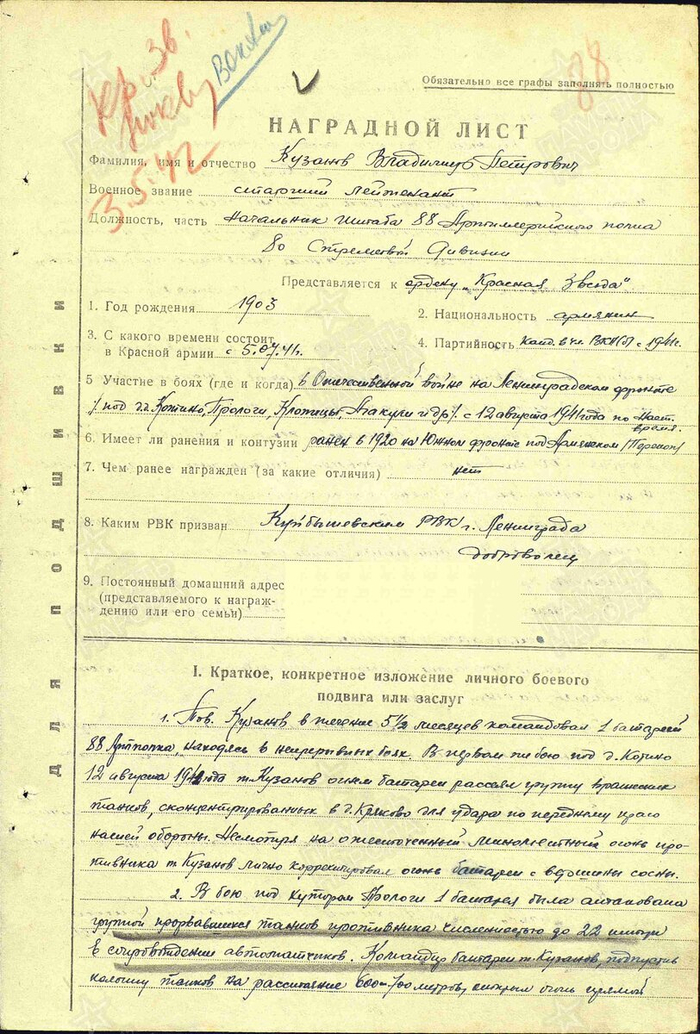 Кр. Зв.
3.5.42
88
Обязательно все графы заполнять полностью
НАГРАДНОЙ ЛИСТ
Фамилия, имя и отчество Кузанов Владимир Петрович
Военное звание старший лейтенант
Должность, часть Начальник штаба 88 Артиллерийского полка
80 Стрелковой Дивизии
Представляется к ордену „Красная Звезда“.
1. Год рождения 1903
2. Национальность армянин
3. С какого времени состоит
в Красной армии с 5.07.41.
4. Партийность Канд. в чл. ВКП(б) с 1941г.
5 Участие в боях (где и когда) в Отечественной войне на Ленинградском фронте
под д.д. Котино, Прологи, Клопицы, и др. с 12 августа 1941 года по наст.
время.
6. Имеет ли ранения и контузии ранен в 1920 на Южном фронте под Армянском (Перекоп)
7. Чем ранее награжден (за какие отличия) нет
8. Каким РВК призван Куйбышевским РВК г. Ленинграда
доброволец
9. Постоянный домашний адрес
(представляемого к награж-
дению или его семьи)
ДЛЯ ПОДШИВКИ
I. Краткое, конкретное изложение личного боевого
подвига или заслуг
1. Тов. Кузанов в течение 5½ месяцев командовал 1 батареей
88 Артполка, находясь в непрерывных боях. В первом же бою под д. Котино
12 августа 1941 года т. Кузанов огнем батареи рассеял группу вражеских
танков, сконцентрированных в д. для удара по переднему краю
нашей обороны. Несмотря на ожесточенный минометный огонь про-
тивника т. Кузанов лично корректировал огонь батареи с вершины сосны.
2. В бою под хутором Прологи 1 батарея была атакована
группой прорвавшихся танков противника численностью до 22 штук
в сопровождении автоматчиков. Командир батареи т. Кузанов, подпустив
колонну танков на расстояние 600-700 метров, открыл огонь прямой